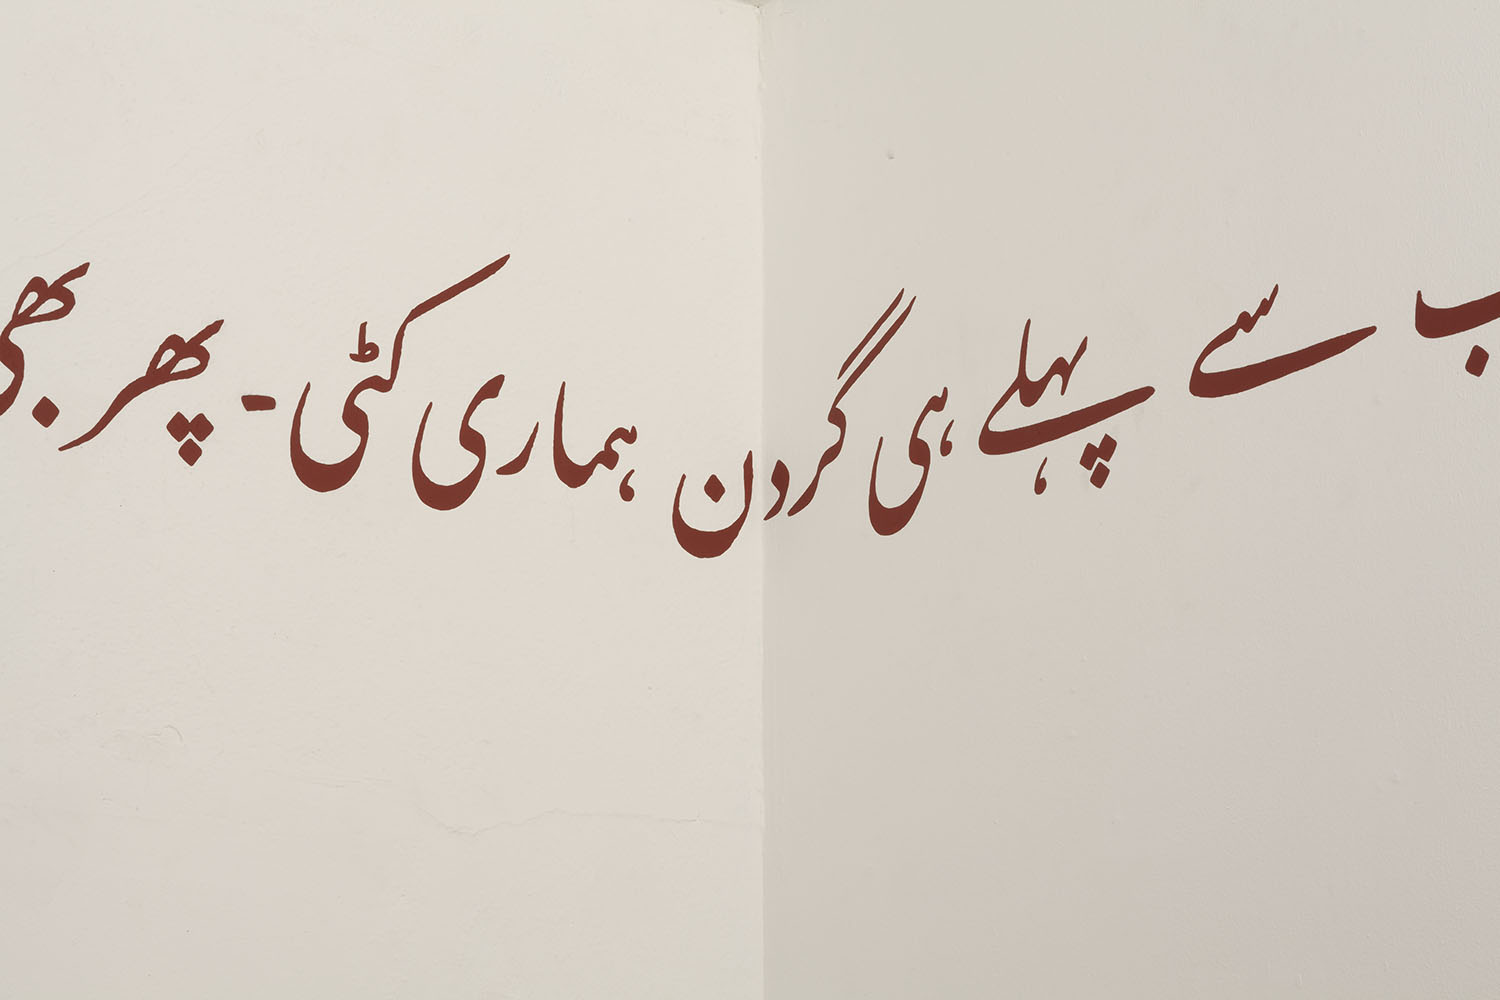 ب سے پہلے ہی گردن ہماری کٹی - پھر بھی